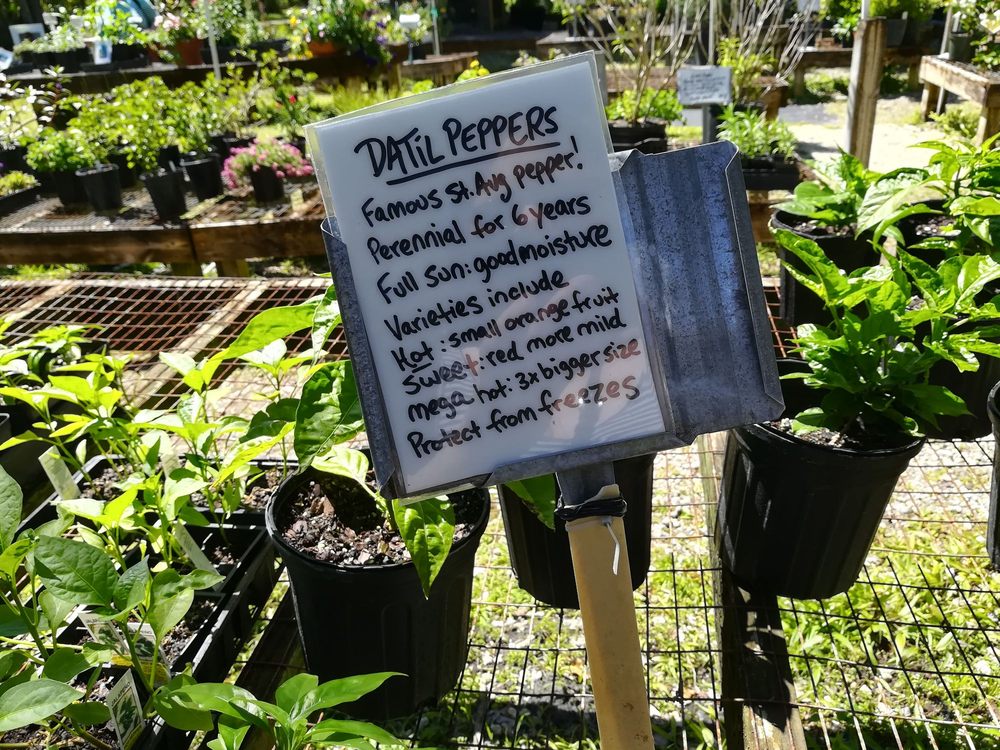 DATiL PEPPERS
Famous St. Aug pepper!
Perennial for 6 years
Full sun: good moisture
Varieties include
Hot: small orange fruit
Sweet: red more mild
mega hot: 3x bigger size
Protect from freezes